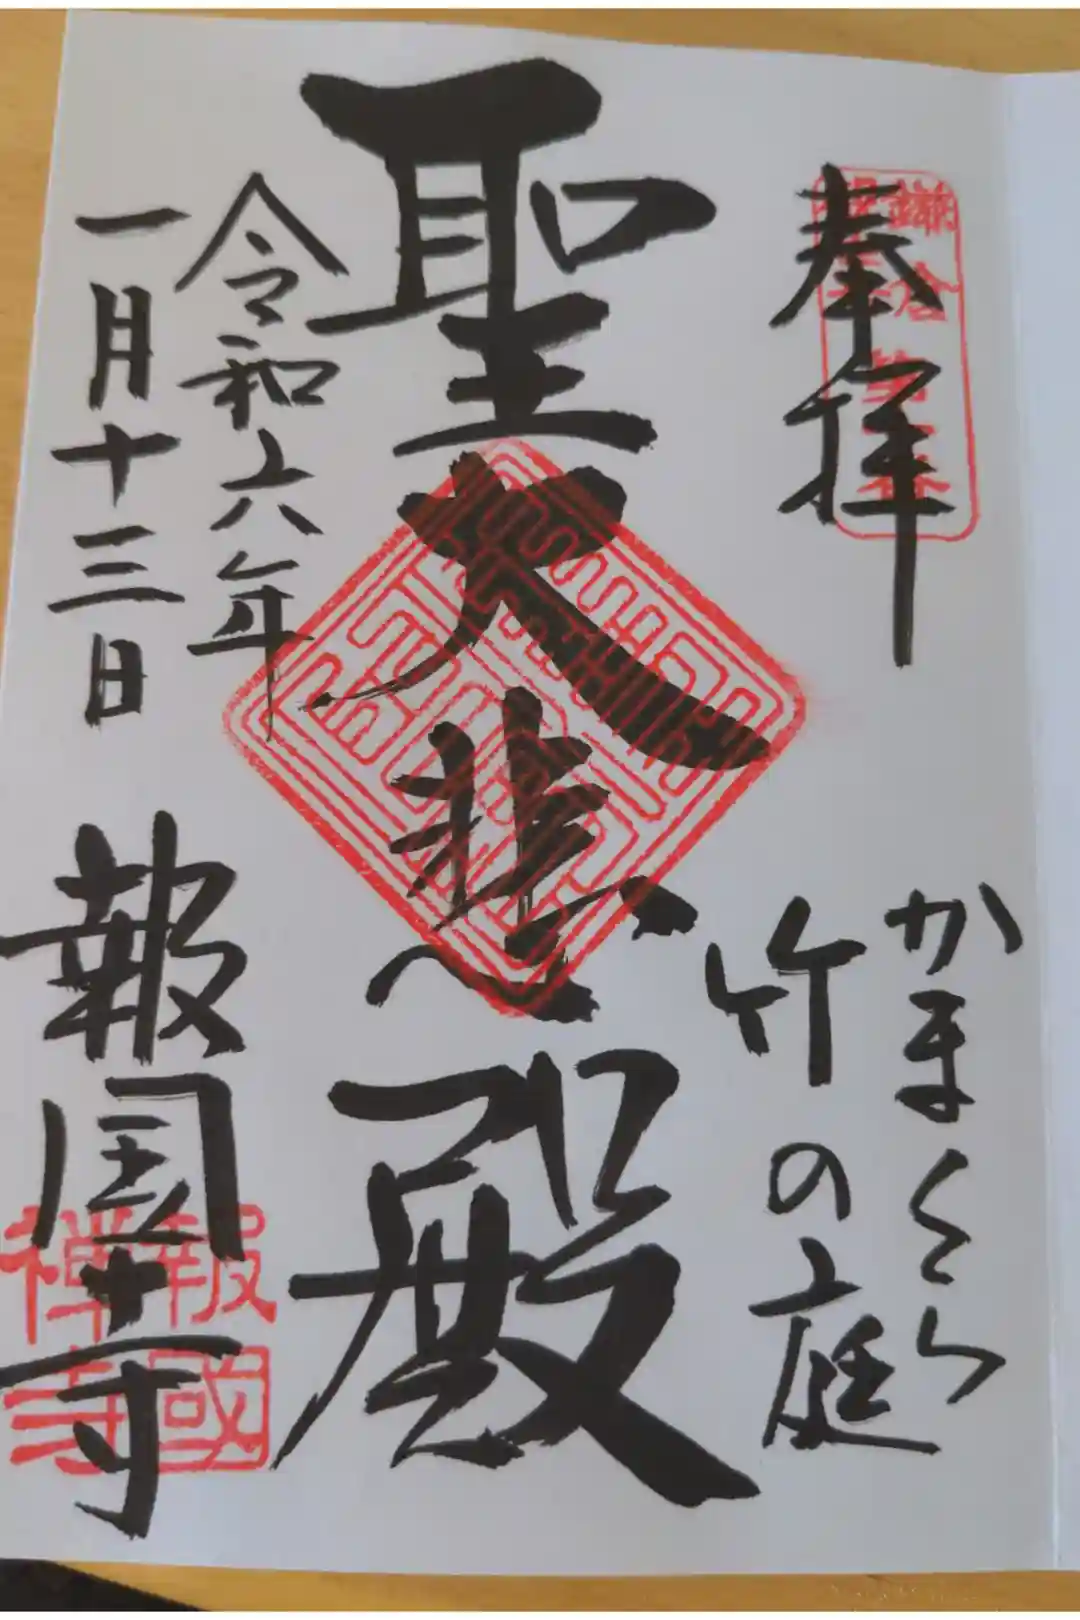 奉拝
かまくら
竹の庭
聖大悲殿
令和六年
一月十三日
報国寺
報國
禅寺